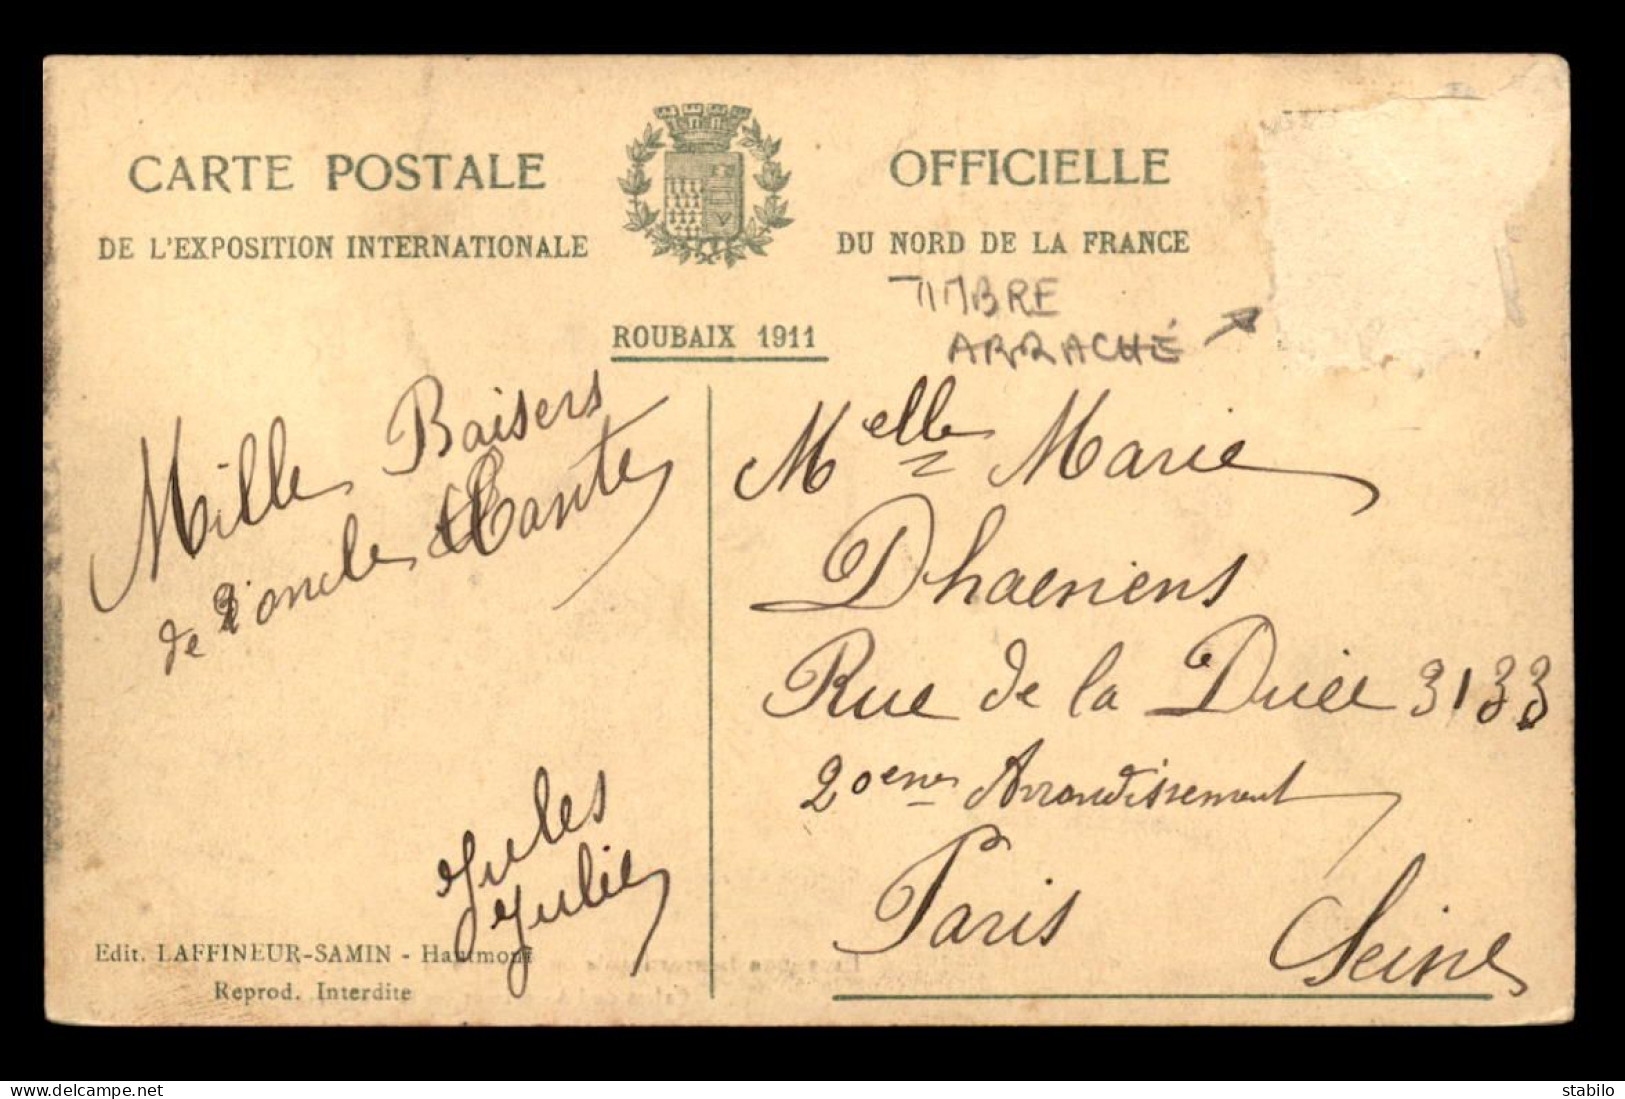 CARTE POSTALE OFFICIELLE
DE L'EXPOSITION INTERNATIONALE DU NORD DE LA FRANCE
ROUBAIX 1911
TIMBRE
ARRACHÉ
Mille Baisers
de l'oncle & Tante
Jules
Julie
Edit. LAFFINEUR-SAMIN - Hautmont
Reprod. Interdite
Melle Marie
Dhaeniens
Rue de la Duée 3133
20eme Arrondissement
Paris
Seine
stabilo